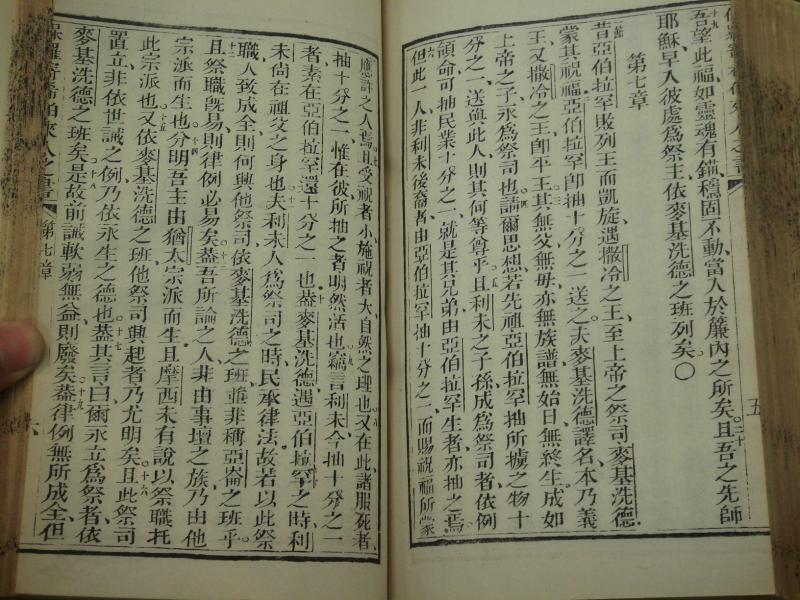 吾望此福如靈魂有錨穩固不動當入於簾內之所矣二十且吾之先師
耶穌早入彼處爲祭主依麥基洗德之班列矣〇
第七章
昔亞伯拉罕敗列王而凱旋遇撒冷之王至上帝之祭司麥基洗德
蒙其祝福亞伯拉罕卽抽十分之一送之夫麥基洗德譯名本乃義
王又撒冷之王卽平王其無父無母亦無族譜無始日無終生成如
上帝之子永爲祭司也請爾思想若先祖亞伯拉罕抽所擄之物十
分之一送與此人則其何等尊乎且利未之子孫成爲祭司者依例
領命可抽民業十分之一就是其兄弟由亞伯拉罕生者亦抽之焉
但此一人非利未後裔者由亞伯拉罕抽十分之一而賜祝福所蒙
應許之人焉且受祝者小施祝者大自然之理也又在此諸服死者
抽十分之一惟在彼所抽之者明然活也竊言利未今抽十分之一
者素在亞伯拉罕還十分之一也蓋麥基洗德遇亞伯拉罕之時利
未尙在祖父之身也夫利未人爲祭司之時民承律法故若以此祭
職人致成全則何與他祭司依麥基洗德之班並非稱亞崙之班乎
且祭職旣易則律例必易矣蓋吾所論之人非由事壇之族乃由他
宗派而生也分明吾主由猶太宗派而生且摩西未有說以祭職托
此宗派也又依麥基洗德之班他祭司興起者乃尤明矣且此祭司
置立非依世誡之例乃依永生之德也蓋其言曰爾永立爲祭者依
麥基洗德之班矣是故前誡軟弱無益則廢矣蓋律例無所成全但
第七章
五
六